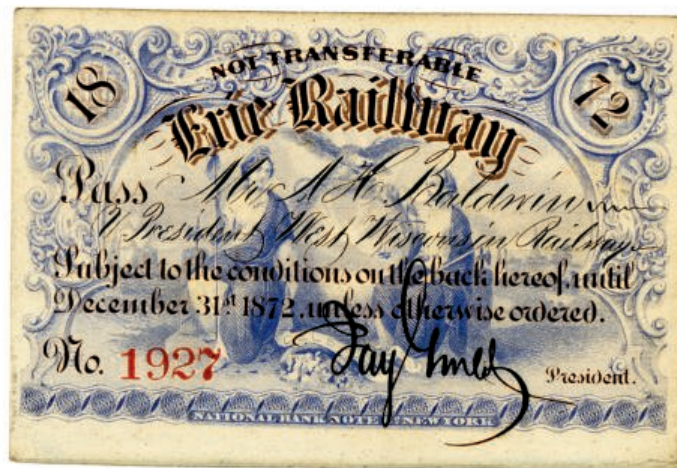 NOT TRANSFERABLE
18 72
Erie Railway
Pass Mr. A H. Baldwin
V President West Wisconsin Railway
Subject to the conditions on the back hereof, until
December 31st 1872, unless otherwise ordered.
No. 1927 Jay Gould President.
NATIONAL BANK NOTE NEW YORK